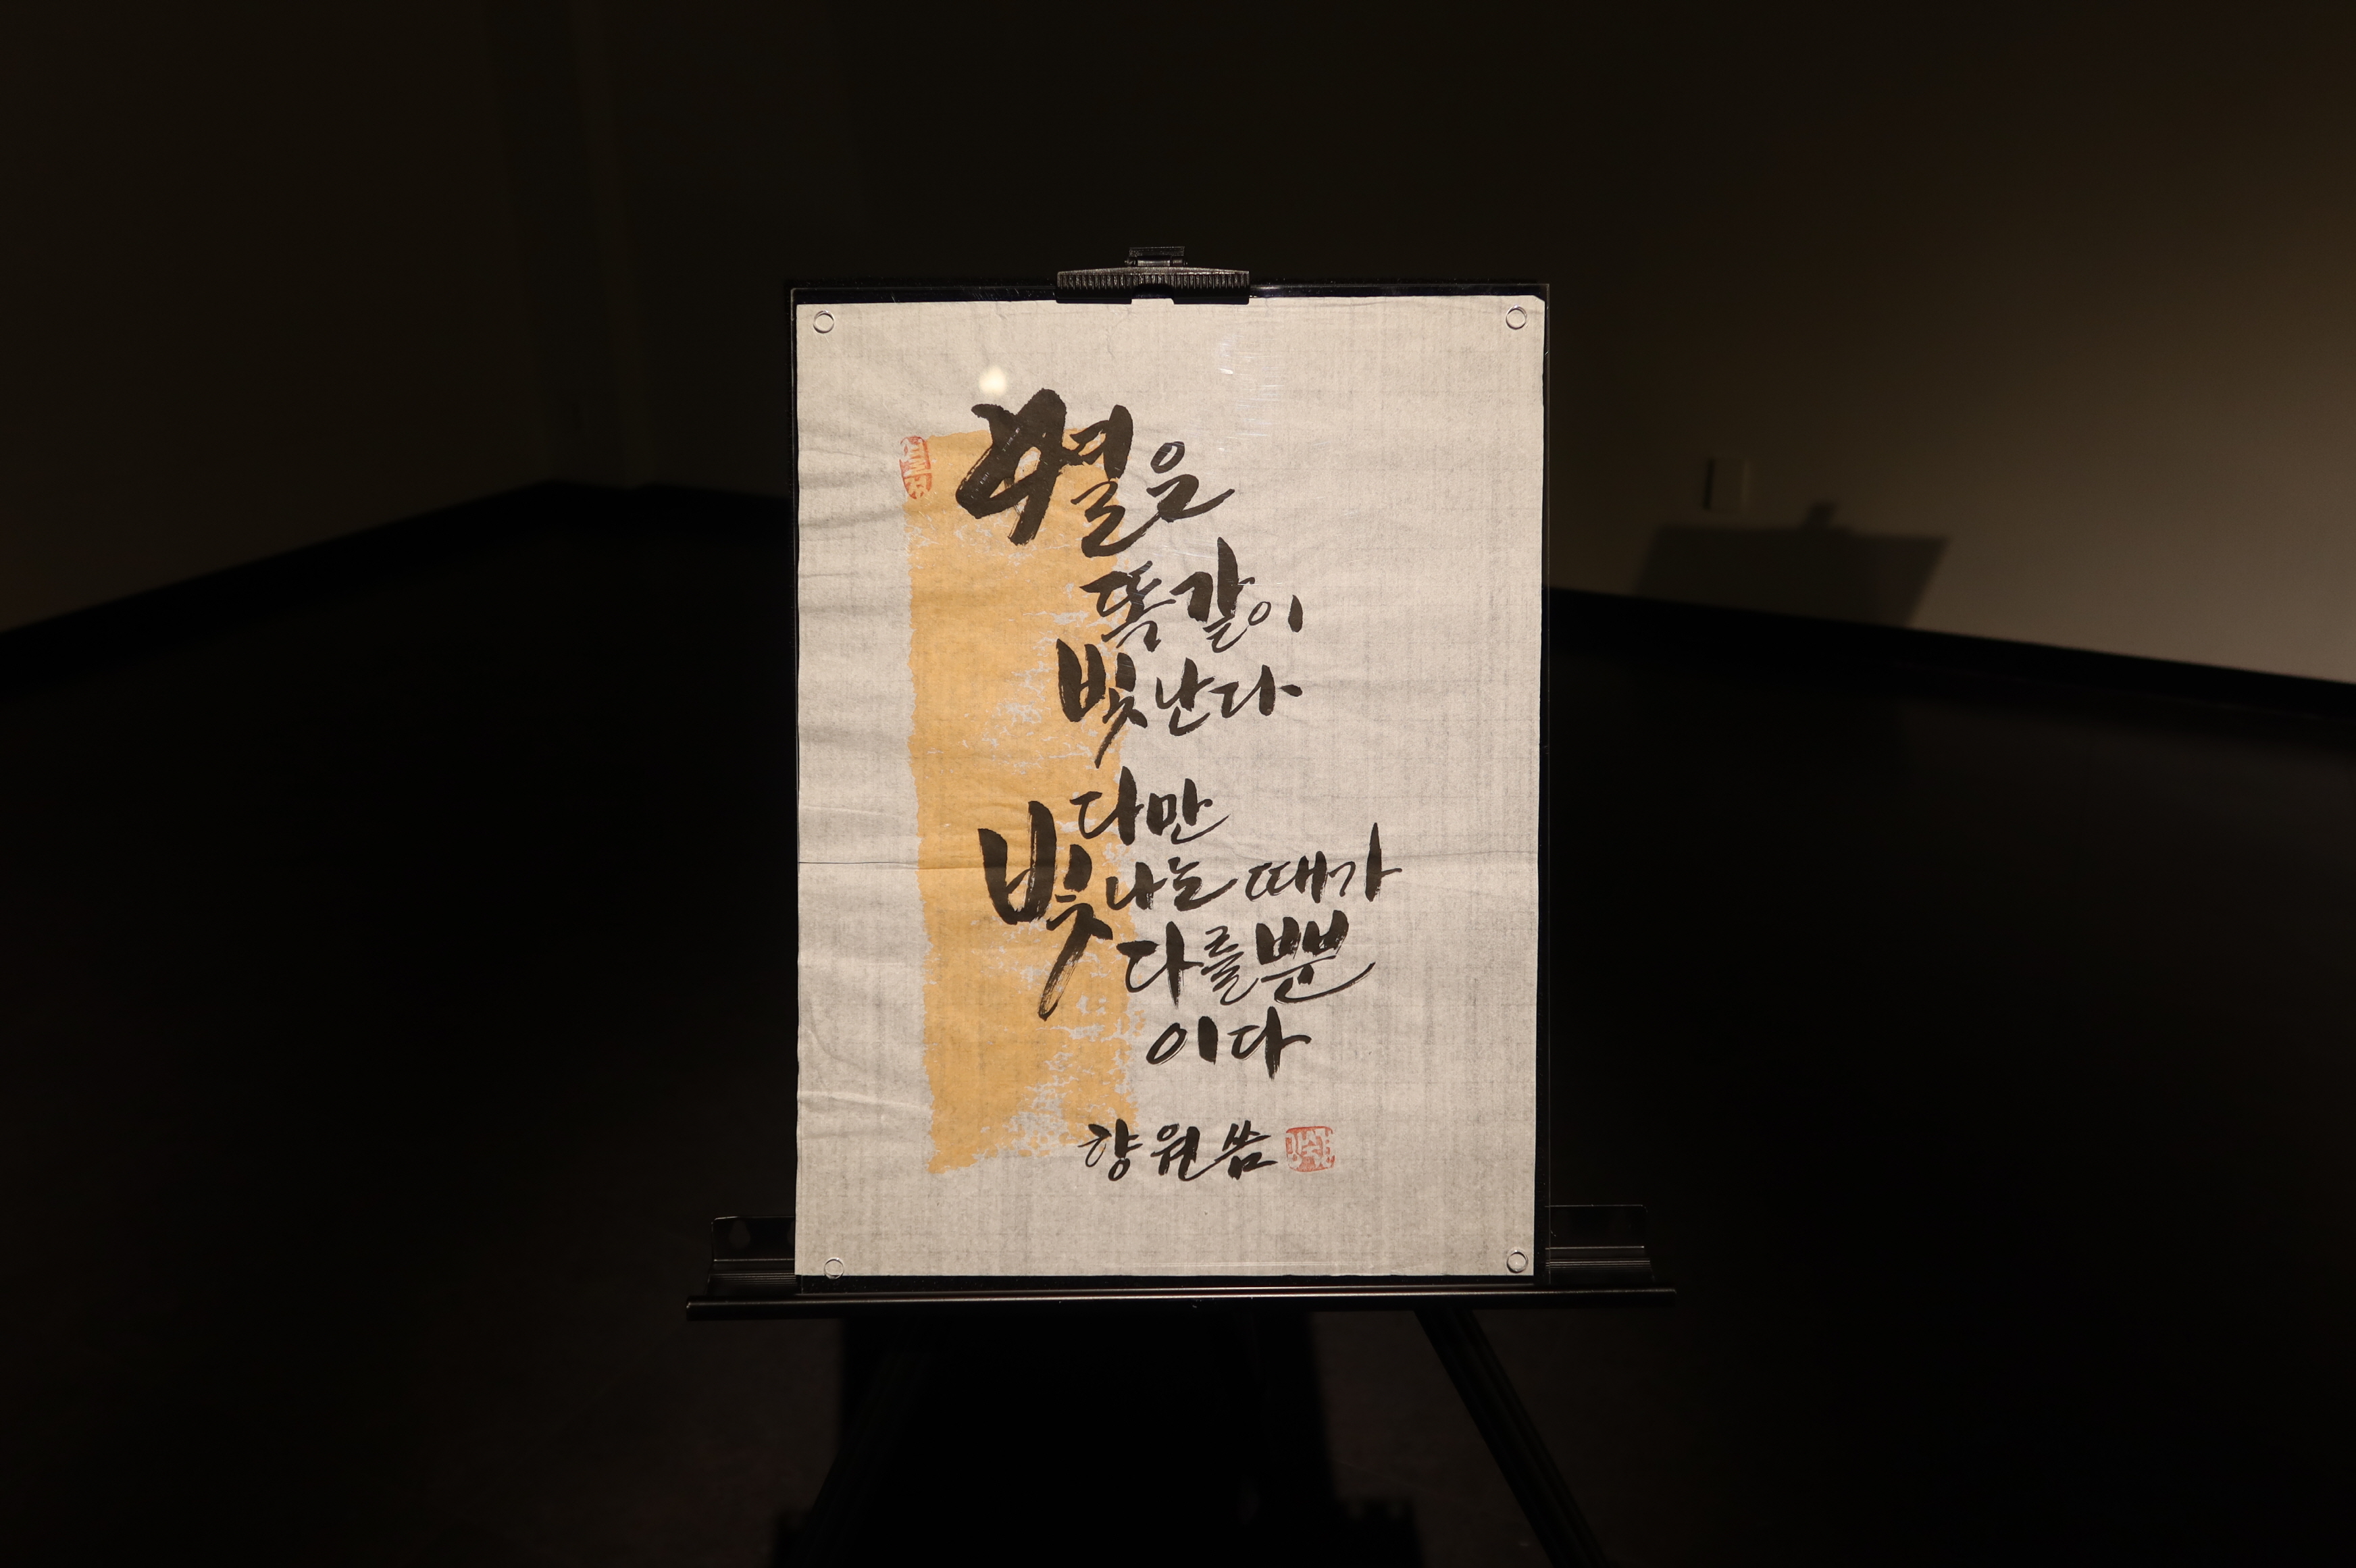 별은
똑같이
빛난다
다만
빛나는 때가
다를뿐
이다
향원 씀